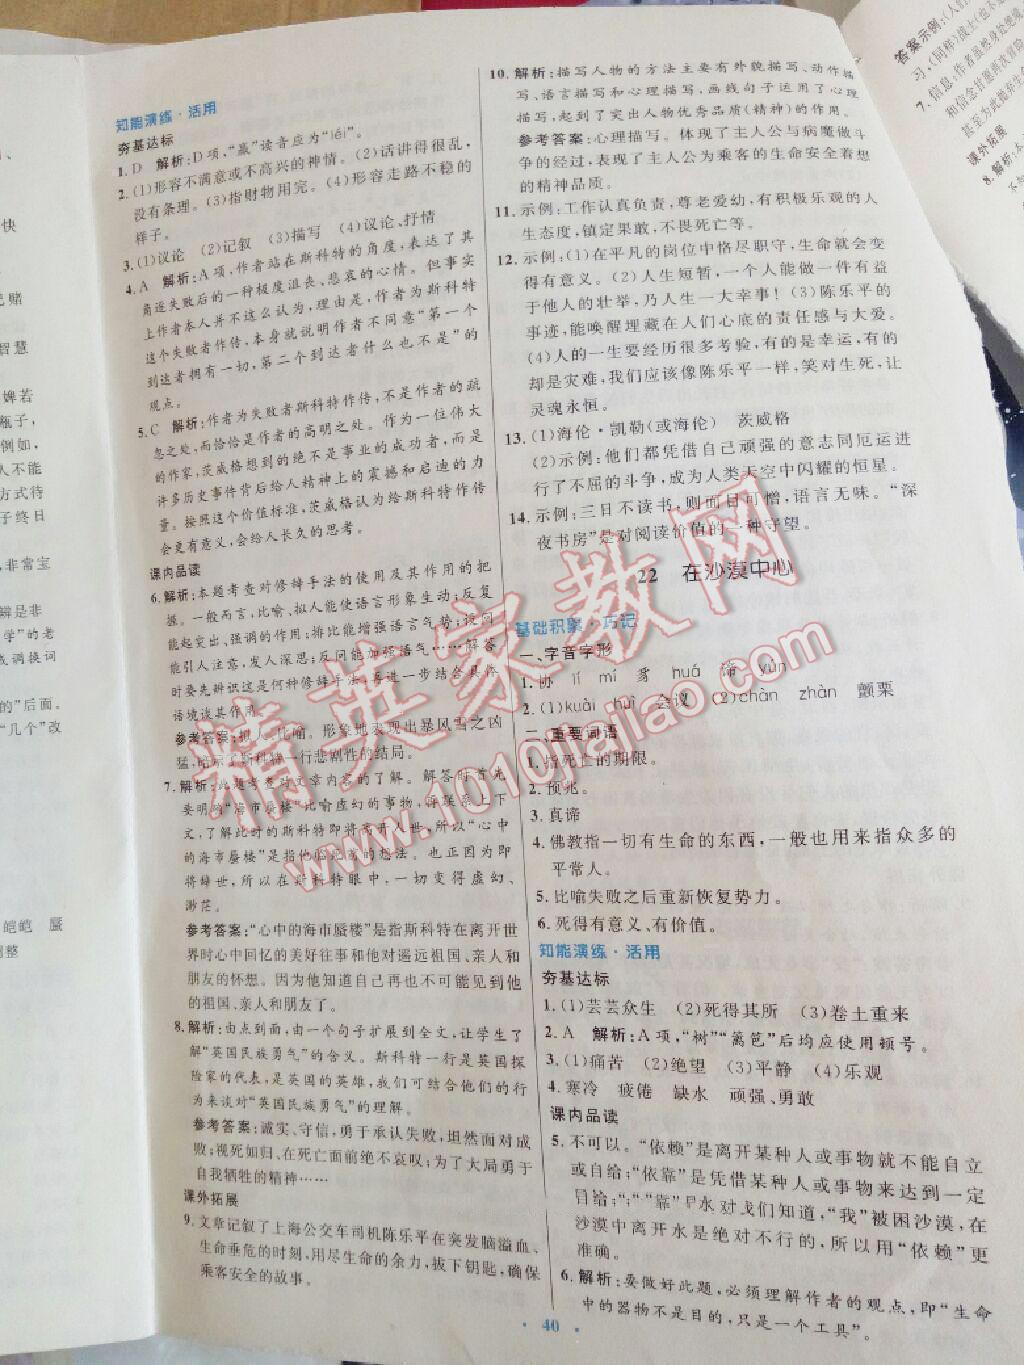 知能演练·活用
夯基达标
1. D 解析:D项,“羸”读音应为“léi”。
2. (1)形容不满意或不高兴的神情。(2)话讲得很乱,
没有条理。(3)指财物用完。(4)形容走路不稳的
样子。
3. (1)议论 (2)记叙 (3)描写 (4)议论、抒情
4. A 解析:A项,作者站在斯科特的角度,表达了其
角逐失败后的一种极度沮丧、悲哀的心情。但事实
上作者本人并不这么认为,理由是,作者为斯科特
这个失败者作传,本身就说明作者不同意“第一个
到达者拥有一切,第二个到达者什么也不是”的
观点。
5. C 解析:作者为失败者斯科特作传,不是作者的疏
忽之处,而恰恰是作者的高明之处。作为一位伟大
的作家,茨威格想到的绝不是事业的成功者,而是
许多历史事件背后给人精神上的震撼和启迪的力
量。按照这个价值标准,茨威格认为给斯科特作传
会更有意义,会给人长久的思考。
课内品读
6. 解析:本题考查对修辞手法的使用及其作用的把
握。一般而言,比喻、拟人能使语言形象生动;反复
能起突出、强调的作用;排比能增强语言气势;设问
能引人注意,发人深思;反问能加强语气……解答
时要先辨识这是何种修辞手法,再进一步结合具体
语境谈其作用。
参考答案:拟人、比喻。形象地表现出暴风雪之凶
猛,暗示了斯科特一行悲剧性的结局。
7. 解析:此题考查对文章内容的了解。解答时首先
要明确“海市蜃楼”比喻虚幻的事物,再联系上下
文,了解此时的斯科特即将离开人世,所以“心中
的海市蜃楼”是指他临死前的想法。也正因为即
将辞世,所以在斯科特眼中,一切变得虚幻、
渺茫。
参考答案:“心中的海市蜃楼”是指斯科特在离开世
界时心中回忆的美好往事和他对遥远祖国、亲人和
朋友的怀想。因为他知道自己再也不可能见到他
的祖国、亲人和朋友了。
8. 解析:由点到面,由一个句子扩展到全文,让学生了
解“英国民族勇气”的含义。斯科特一行是英国探
险家的代表,是英国的英雄,我们可结合他们的行
为来谈对“英国民族勇气”的理解。
参考答案:诚实、守信,勇于承认失败,坦然面对成
败;视死如归、在死亡面前绝不哀叹;为了大局勇于
自我牺牲的精神……
课外拓展
9. 文章记叙了上海公交车司机陈乐平在突发脑溢血、
生命垂危的时刻,用尽生命的余力,拔下钥匙,确保
乘客安全的故事。
10. 解析:描写人物的方法主要有外貌描写、动作描
写、语言描写和心理描写,画线句子运用了心理
描写,起到了突出人物优秀品质(精神)的作用。
参考答案:心理描写。体现了主人公与病魔做斗
争的经过,表现了主人公为乘客的生命安全着想
的精神品质。
11. 示例:工作认真负责,尊老爱幼,有积极乐观的人
生态度,镇定果敢,不畏死亡等。
12. 示例:(1)在平凡的岗位中恪尽职守,生命就会变
得有意义。(2)人生短暂,一个人能做一件有益
于他人的壮举,乃人生一大幸事!(3)陈乐平的
事迹,能唤醒埋藏在人们心底的责任感与大爱。
(4)人的一生要经历很多考验,有的是幸运,有的
却是灾难,我们应该像陈乐平一样,笑对生死,让
灵魂永恒。
13. (1)海伦·凯勒(或海伦) 茨威格
(2)示例:他们都凭借自己顽强的意志同厄运进
行了不屈的斗争,成为人类天空中闪耀的恒星。
14. 示例:三日不读书,则面目可憎,语言无味。“深
夜书房”是对阅读价值的一种守望。
22 在沙漠中心
基础积累·巧记
一、字音字形
1. 胁 lǐ mí 雾 huá 谛 yǔn
2. (1)kuài huì 会议 (2)chàn zhàn 颤栗
二、重要词语
1. 指死亡的期限。
2. 预兆。
3. 真谛
4. 佛教指一切有生命的东西,一般也用来指众多的
平常人。
5. 比喻失败之后重新恢复势力。
6. 死得有意义、有价值。
知能演练·活用
夯基达标
1. (1)芸芸众生 (2)死得其所 (3)卷土重来
2. A 解析:A项,“树”“篱笆”后均应使用顿号。
3. (1)痛苦 (2)绝望 (3)平静 (4)乐观
4. 寒冷 疲倦 缺水 顽强、勇敢
课内品读
5. 不可以。“依赖”是离开某种人或事物就不能自立
或自给;“依靠”是凭借某种人或事物来达到一定
沙漠中离开水是绝对不行的,所以用“依赖”更
准确。
6. 解析:要做好此题,必须理解作者的观点,即“生命
中的器物不是目的,只是一个工具”。
· 40 ·
精英家教网
www.1010jiajiao.com